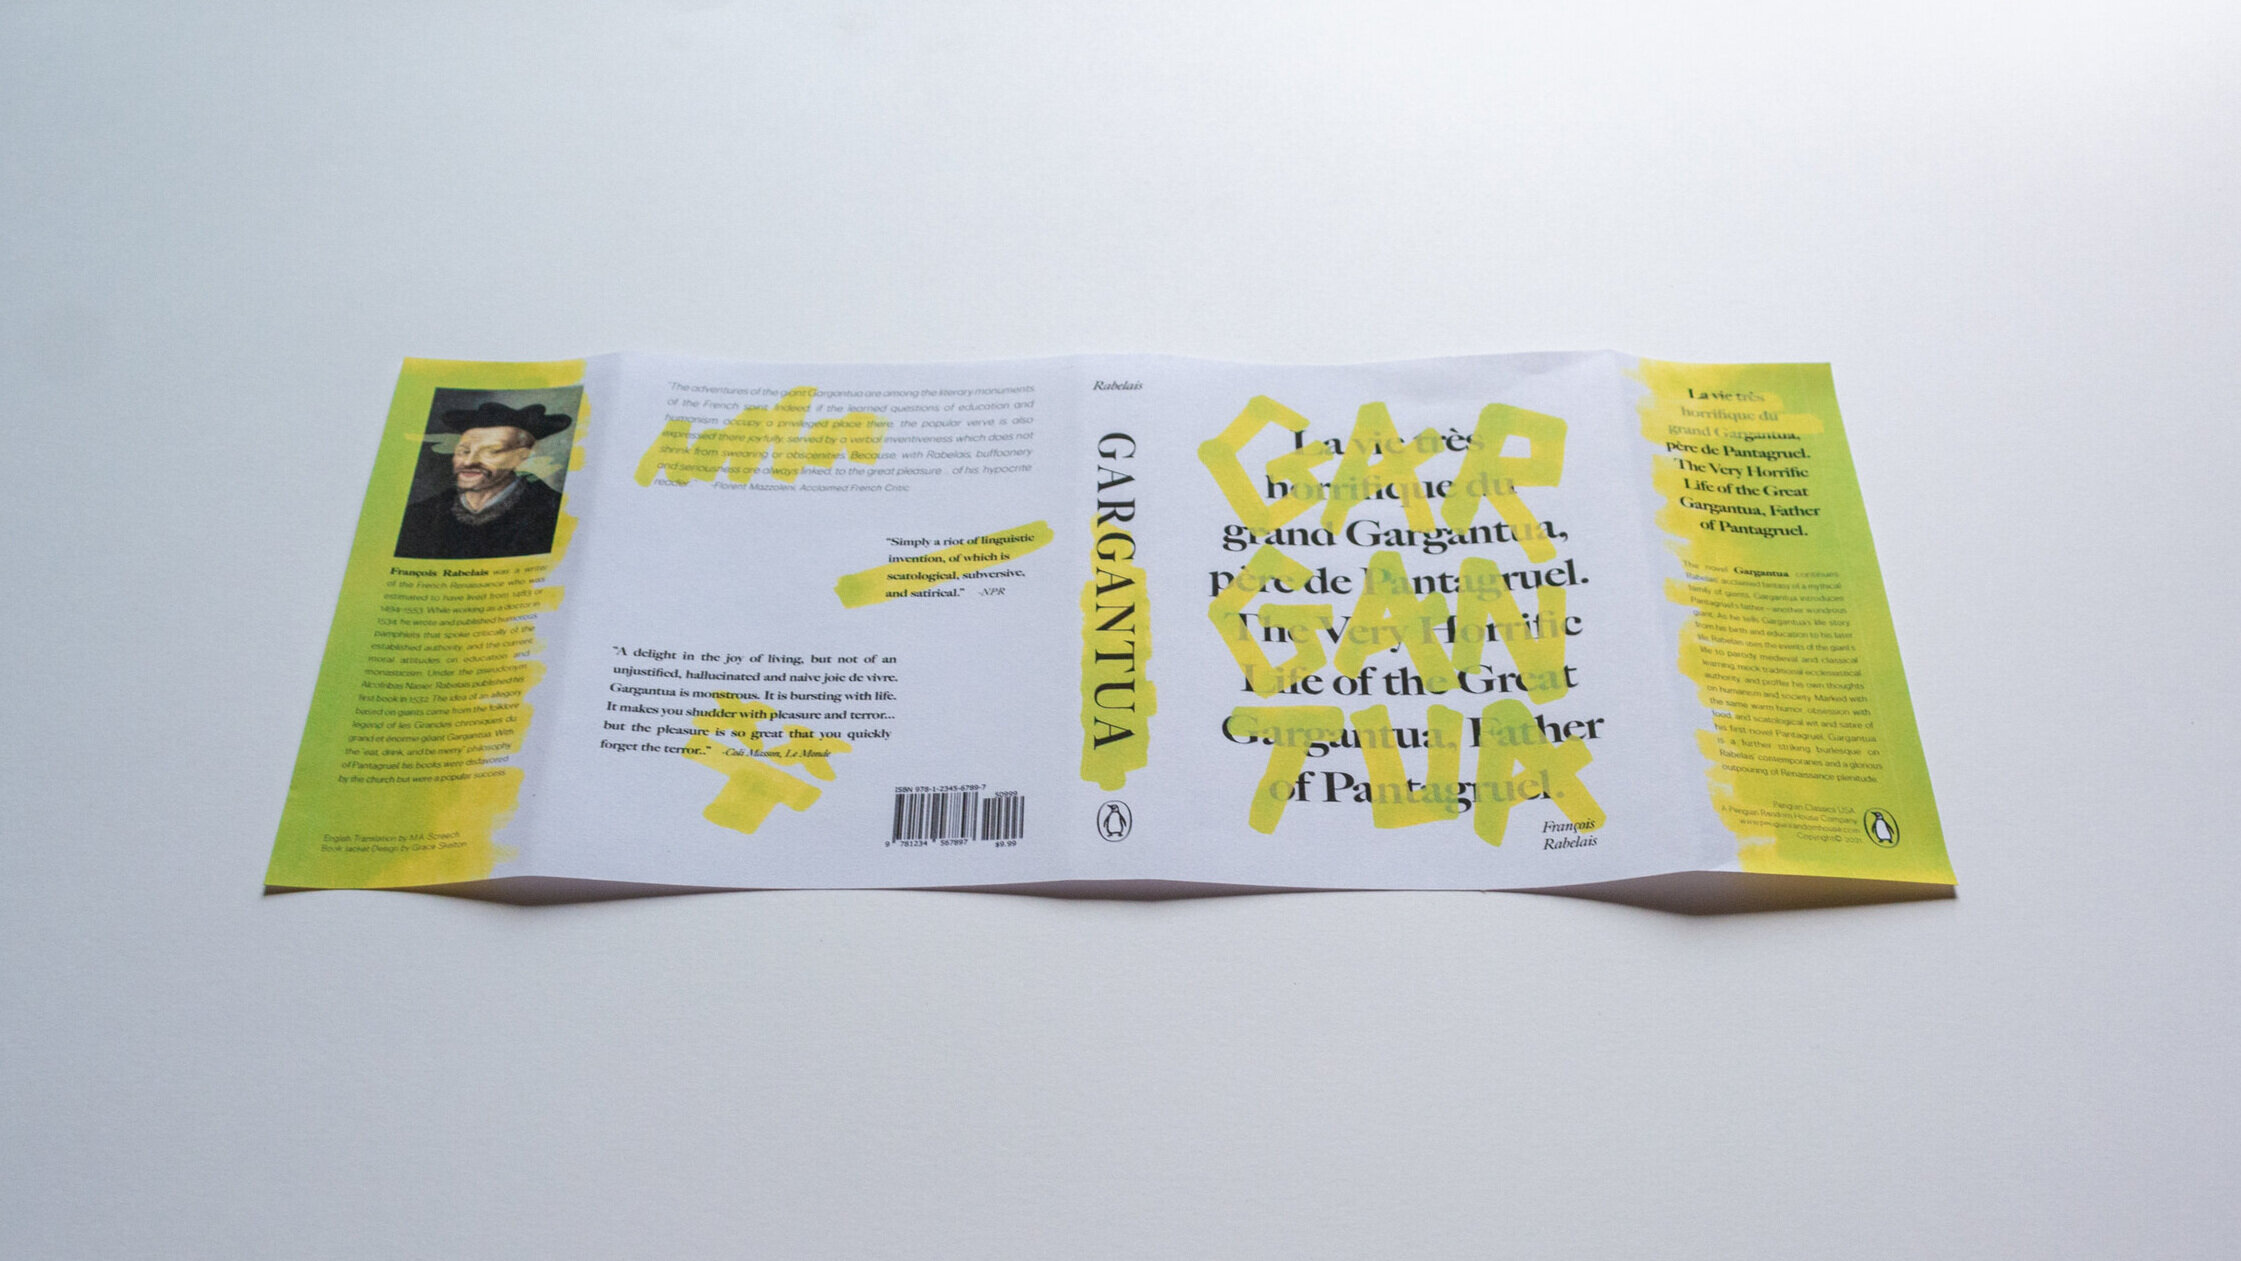 François Rabelais was a writer
of the French Renaissance who was
estimated to have lived from 1483 or
1494-1553. While working as a doctor in
1534, he wrote and published humorous
pamphlets that spoke critically of the
established authority, and the current
moral attitudes on education and
monasticism. Under the pseudonym
Alcofribas Nasier, Rabelais published his
first book in 1532. The idea of an allegory
based on giants came from the folklore
legend of les Grandes chroniques du
grand et énorme géant Gargantua. With
the "eat, drink, and be merry" philosophy
of Pantagruel his books were disfavored
by the church but were a popular success.
English Translation by M.A. Screech
Book Jacket Design by Grace Skelton
"The adventures of the giant Gargantua are among the literary monuments
of the French spirit. Indeed, if the learned questions of education and
humanism occupy a privileged place there, the popular verve is also
expressed there joyfully, served by a verbal inventiveness which does not
shrink from swearing or obscenities. Because, with Rabelais, buffoonery
and seriousness are always linked, to the great pleasure... of his hypocrite
reader." -Florent Mazzoleni, Acclaimed French Critic
"Simply a riot of linguistic
invention, of which is
scatological, subversive,
and satirical." -NPR
"A delight in the joy of living, but not of an
unjustified, hallucinated and naive joie de vivre.
Gargantua is monstrous. It is bursting with life.
It makes you shudder with pleasure and terror...
but the pleasure is so great that you quickly
forget the terror.." -Coli Masson, Le Monde
ISBN 978-1-2345-6789-7
50999
9 781234 567897
$9.99
Rabelais
GARGANTUA
GAR
GAN
TUA
La vie très
horrifique du
grand Gargantua,
père de Pantagruel.
The Very Horrific
Life of the Great
Gargantua, Father
of Pantagruel.
François
Rabelais
La vie très
horrifique du
grand Gargantua,
père de Pantagruel.
The Very Horrific
Life of the Great
Gargantua, Father
of Pantagruel.
The novel Gargantua continues
Rabelais' acclaimed fantasy of a mythical
family of giants. Gargantua introduces
Pantagruel's father—another wondrous
giant. As he tells Gargantua's life story
from his birth and education to his later
life Rabelais uses the events of the giant's
life to parody medieval and classical
learning, mock traditional ecclesiastical
authority, and proffer his own thoughts
on humanism and society. Marked with
the same warm humor, obsession with
food, and scatological wit and satire of
his first novel Pantagruel, Gargantua
is a further striking burlesque on
Rabelais contemporaries and a glorious
outpouring of Renaissance plenitude.
Penguin Classics USA
A Penguin Random House Company
www.penguinrandomhouse.com
Copyright© 2021